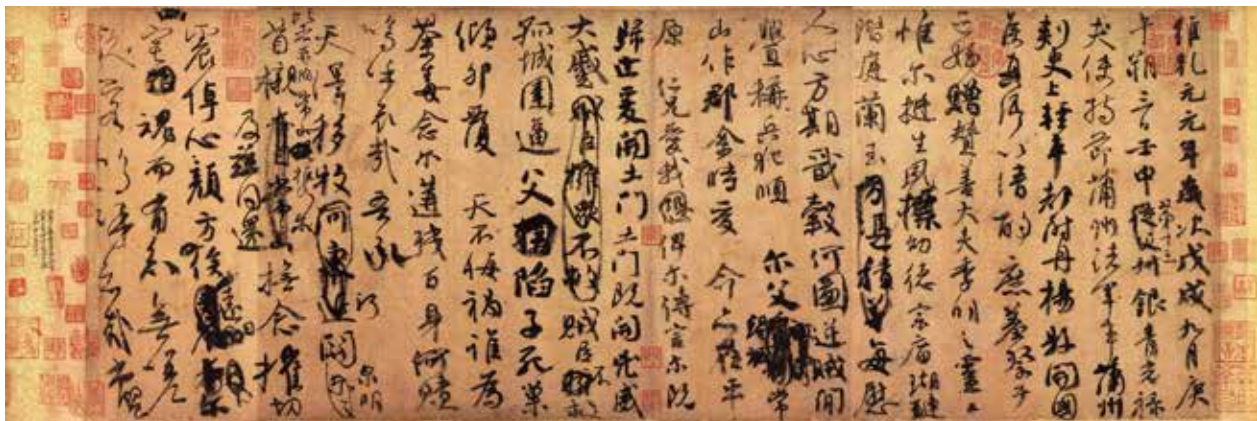 維乾元元年歲次戊戌九月庚
午朔三日壬申第十三叔銀青光祿
夫使持節蒲州諸軍事蒲州
刺史上輕車都尉丹楊縣開國
侯真卿以清酌庶羞祭于
亡姪贈贊善大夫季明之靈曰
惟爾挺生夙標幼德宗廟瑚璉
階庭蘭玉方憑積善每慰
人心方期戩穀何圖逆賊閒
釁稱兵犯順爾父竭誠常
山作郡余時受命亦在平
原仁兄愛我俾爾傳言爾既
歸止爰開土門土門既開凶威
大蹙賊臣不救
孤城圍逼父陷子死巢
傾卵覆天不悔禍誰為
荼毒念爾遘殘百身何贖
嗚呼哀哉吾承
天澤移牧河關泉明
比者再陷常山攜爾
首櫬及茲同還撫念摧切
震悼心顏方俟遠日卜爾
幽宅魂而有知無嗟
久客嗚呼哀哉尚饗